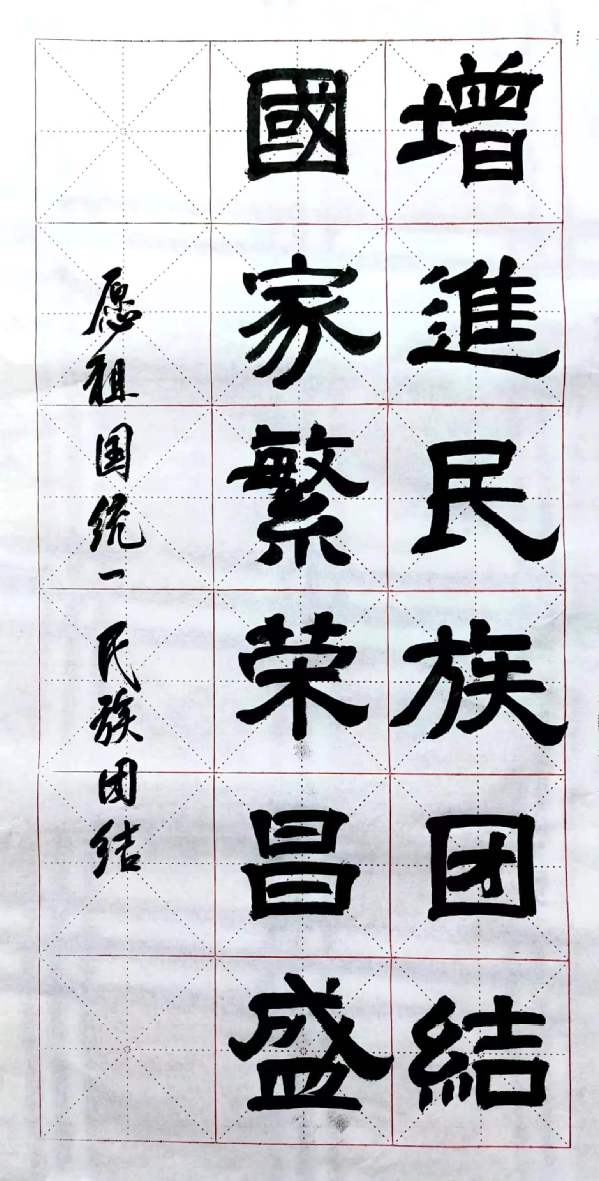 增進民族团結
國家繁荣昌盛
愿祖国统一民族团结